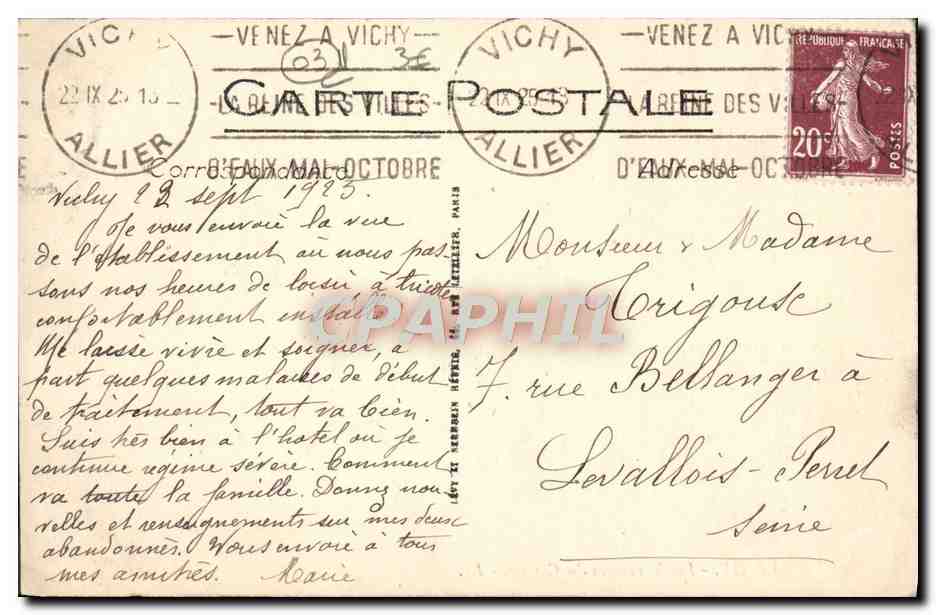 VICHY
22 IX 25 13
ALLIER
VENEZ A VICHY
LA REINE DES VILLES
D'EAUX-MAI-OCTOBRE
VICHY
22 IX 25-13
ALLIER
VENEZ A VICHY
LA REINE DES VILLES
D'EAUX-MAI-OCTOBRE
03
3€
REPUBLIQUE FRANCAISE
20c
POSTES
CARTE POSTALE
Correspondance
Adresse
Vichy 22 sept 1925.
Je vous envoie la vue
de l'établissement où nous pas-
sons nos heures de loisir à tricoter
confortablement installés
Me laisse vivre et soigner, à
part quelques malaises de début
de traitement, tout va bien.
Suis très bien à l'hôtel où je
continue régime sévère. Comment
va toute la famille. Donnez nou-
velles et renseignements sur mes deux
abandonnés. Vous envoie à tous
mes amitiés. Marie
LÉVY ET NEURDEIN RÉUNIS, 44, RUE LETELLIER, PARIS
Monsieur & Madame
Trigouse
7 rue Bellanger à
Levallois-Perret
Seine
CPAPHIL